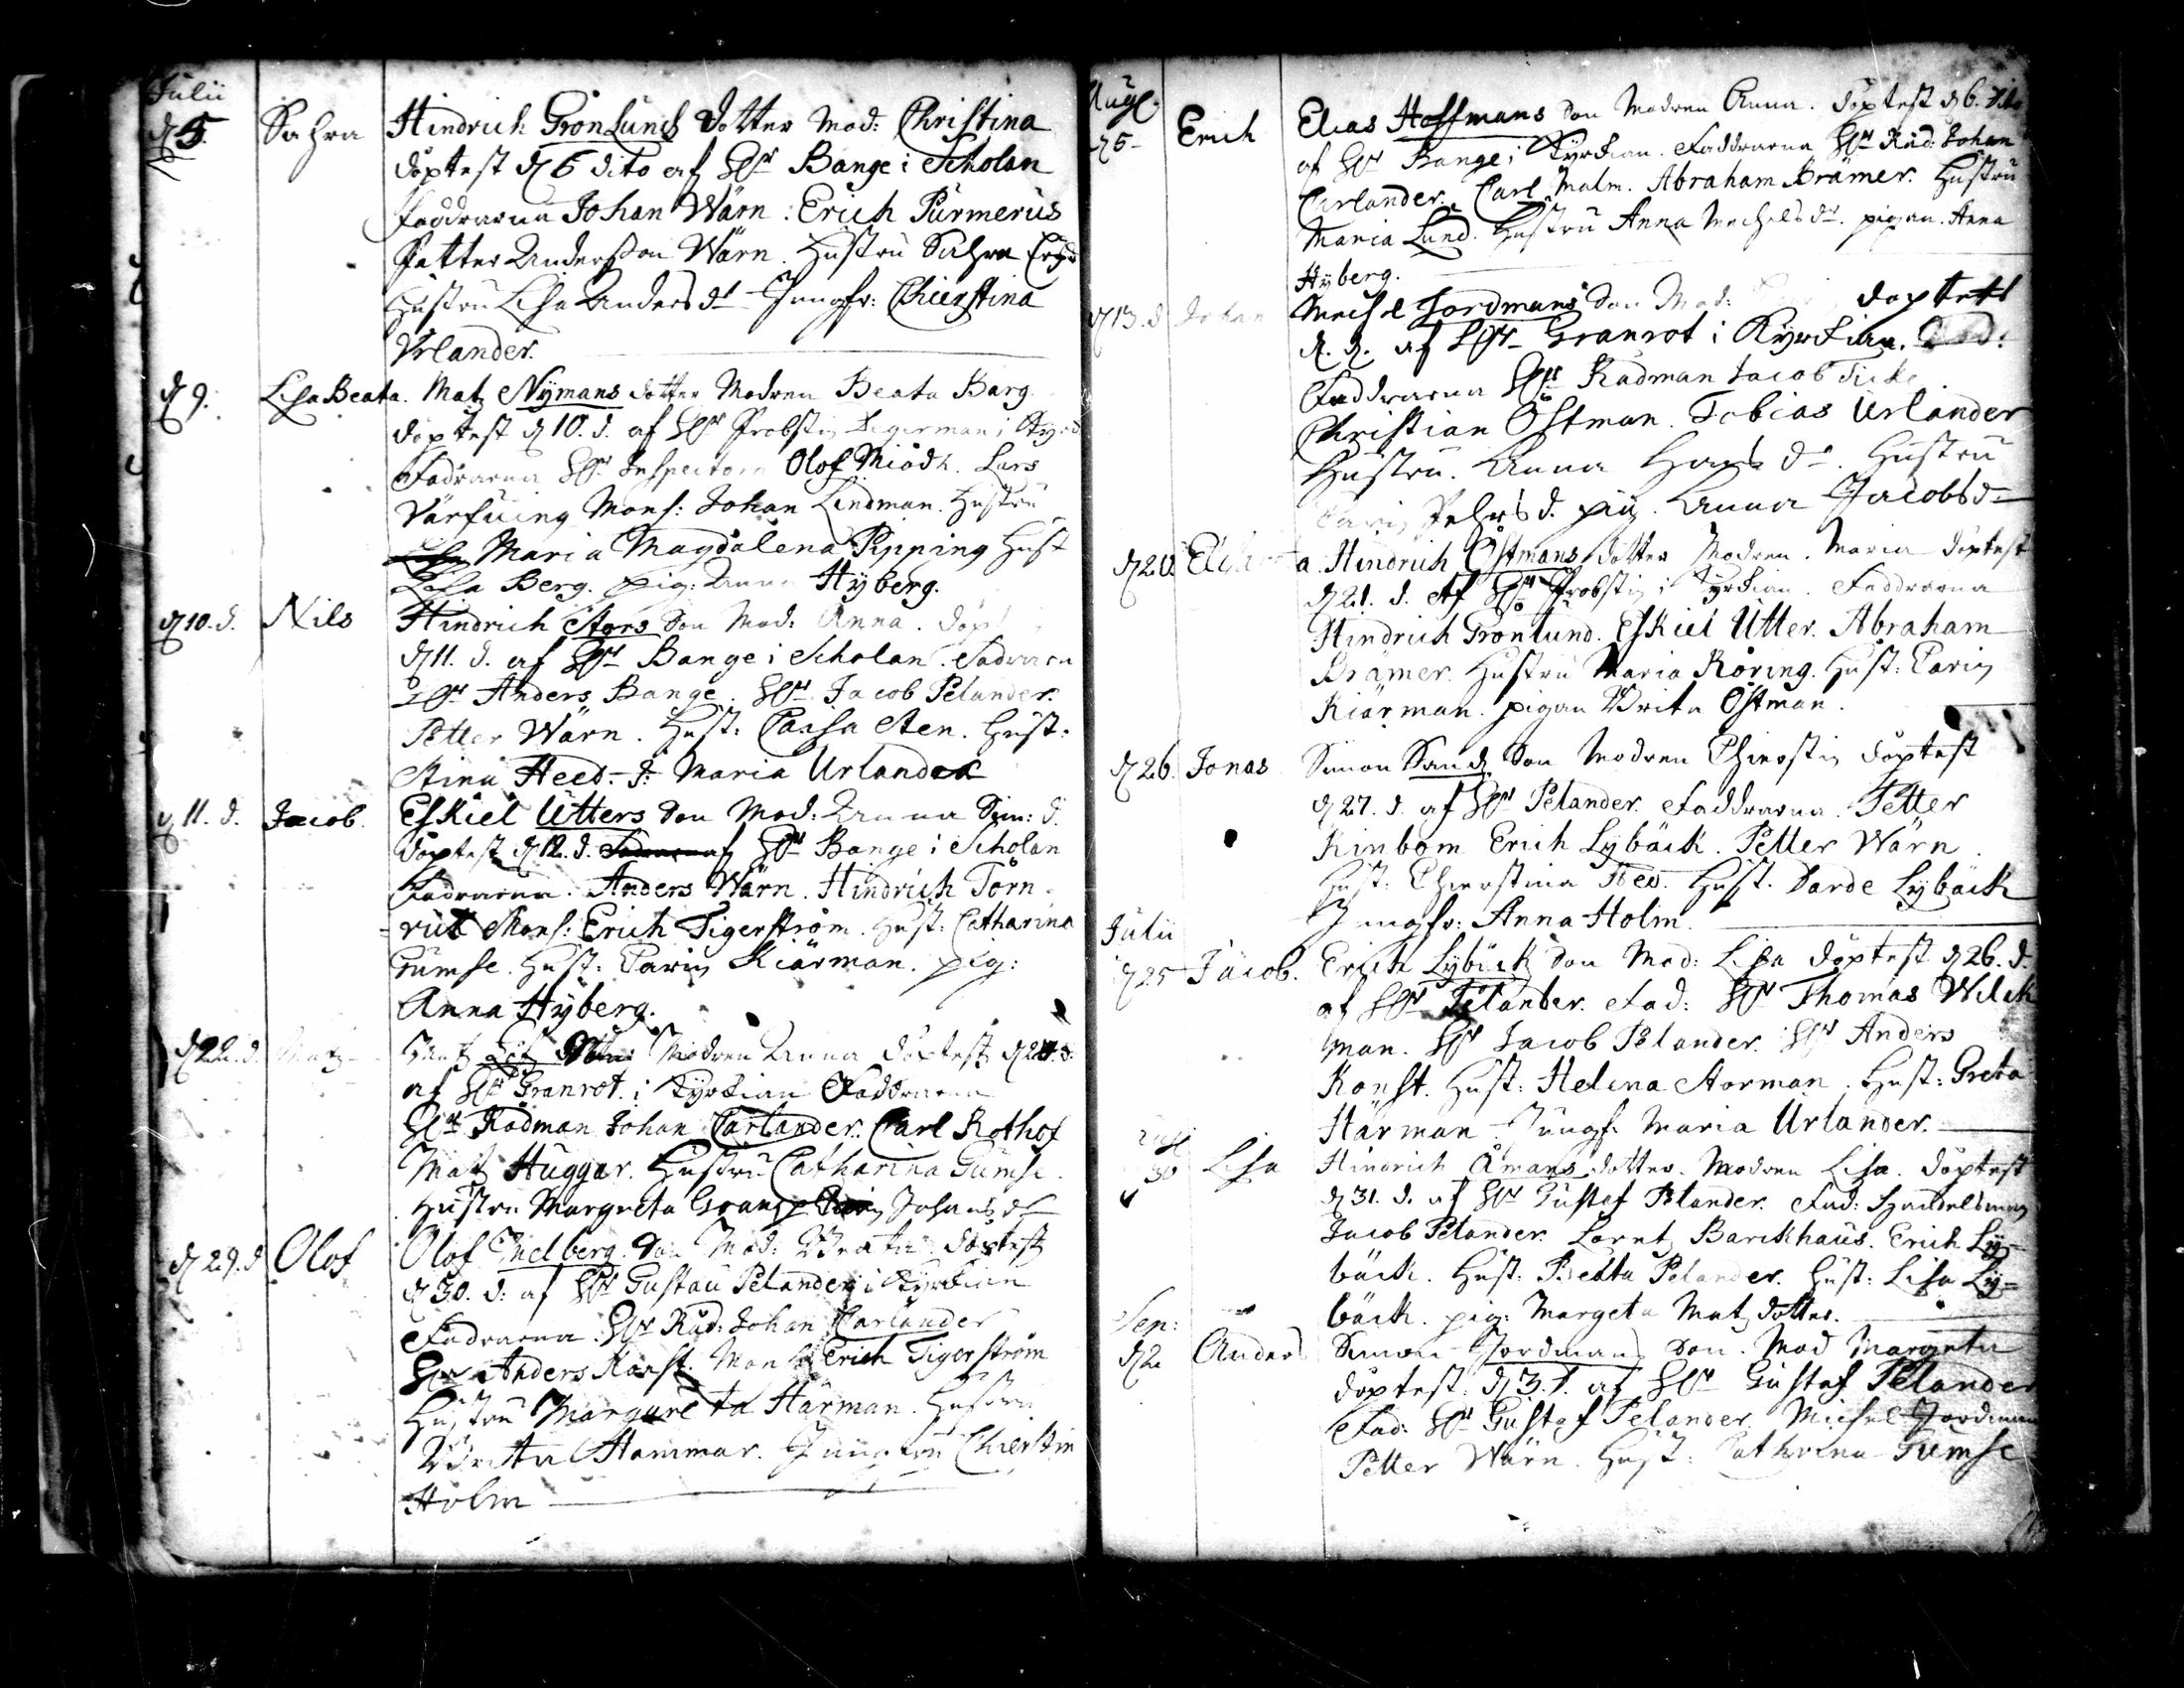 Julii
d 5. Sahra Hindrich Grönlunds dotter Mod: Christina
döptest d 6 dito af Hr Bange i Scholan
faddrarna Johan Wärn. Erich Purmerus
Petter Anderßon Wärn. Hustru Sahra
Hustru Lisa Anders dr Jungfr: Chierstina
Urlander.
d 9. Lisa Beata. Matz Nÿmans dotter Modren Beata Barg
döptest d 10. d. af Hr Probstin Tegerman i
Fadrarna Hr Inspectorn Olof Miödh. Lars
Monß: Johan Lindman. Hustru
Maria Magdalena Pipping Hust
Lisa Berg. pig: Anna Hÿberg.
d 10. d. Nils Hindrich Stors Son Mod: Anna. döpt
d 11. d. af Hr Bange i Scholan. Fadrarn
Hr Anders Bange. Hr Jacob Pelander.
Petter Wärn. Hust: Caisa Sten. Hust:
Stina Heed. J: Maria Urlander
d 11. d. Jacob. Eskiel Utters Son Mod: Anna Sim: d.
döptest d 12. d. af Hr Bange i Scholan
Fadrarna. Anders Wärn. Hindrich Törn
rut Mons: Erich Tigerström. Hust: Catharina
Gumse. Hust: Carin Kiärman. pig:
Anna Hÿberg.
d 22. d. Matz Matz Modren Anna döptest
af Hr Granrot i Kyrkian Faddrarna
Hr Rådman Johan Carlander. Carl Rothof
Matz Huggar. Hustru Catharina Gumse.
Hustru Margreta Johans dr
d 29. d Olof Olof Enelberg Son Mod: Breata döptest
d 30. d: af Hr Gustau Pelander i Kyrkian
Fadrarna Hr Råd: Johan Carlander
Hr Anders Konst. Mons Erich Tigerström
Hustru Margareta Härman. Hustru
Breta Hammar. Jungfru Chierstin
Holm
Aug.
d 5 Erich Elias Hoffmans Son Modren Anna. döptest d 6. dito
af Hr Bange i Kyrkian. Faddrarna Hr Råd: Johan
Carlander. Carl Malm. Abraham Brämer. Hustru
Maria Lund. Hustru Anna Mechels dr. pigan. Anna
Hÿberg.
d 13. d Johan Mechel Jordmans Son Mod: döptest
d. d. af Hr Granrot i Kyrkian.
Faddrarna Hr Rådman Jacob
Christian Östman. Tobias Urlander
Hustru. Anna Hans dr. Hustru
Carin Pehrs d. pig. Anna Jacobs dr
d 20. Hindrich Östmans dotter Modren. Maria döptest
d 21. d. Af Hr Probstin i Kyrkian. Faddrarna
Hindrich Grönlund. Eskiel Utter. Abraham
Brämer. Hustru Maria Röring. Hust: Carin
Kiärman. pigan Brita Östman.
d 26. Jonas Simon Sands Son Modren Chierstin döptest
d 27. d. af Hr Pelander. Faddrarna. Petter
Kinbom Erich Lÿbäck. Petter Wärn
Hust: Chierstina Hed. Hust. Barbe Lÿbäck
Jungfr: Anna Holm.
Julii
d 25 Jacob. Erich Lÿbäck Son Mod: Lisa döptest d 26. d.
af Hr Pelander. Fad: Hr Thomas Welck
man. Hr Jacob Pelander. Hr Anders
Konst. Hust: Helena Storman. Hust: Greta
Härman Jungf: Maria Urlander.
30 Lisa Hindrich Åmans dotter. Modren Lisa. döptest
d 31. d. af Hr Gustaf Pelander. Fad: Handelsman
Jacob Pelander. Lorentz Barckhaus. Erich Lÿ=
bäck. Hust: Beata Pelander. Hust: Lisa Lÿ=
bäck. pig: Margeta Matz dotter.
Sep:
d 2 Anders Simon Jordmans Son. Mod Margeta
döptest. d 3. d. af Hr Gustaf Pelander
Fad: Hr Gustaf Pelander. Michel Jordman
Petter Wärn. Hust: Cathrina Gumse